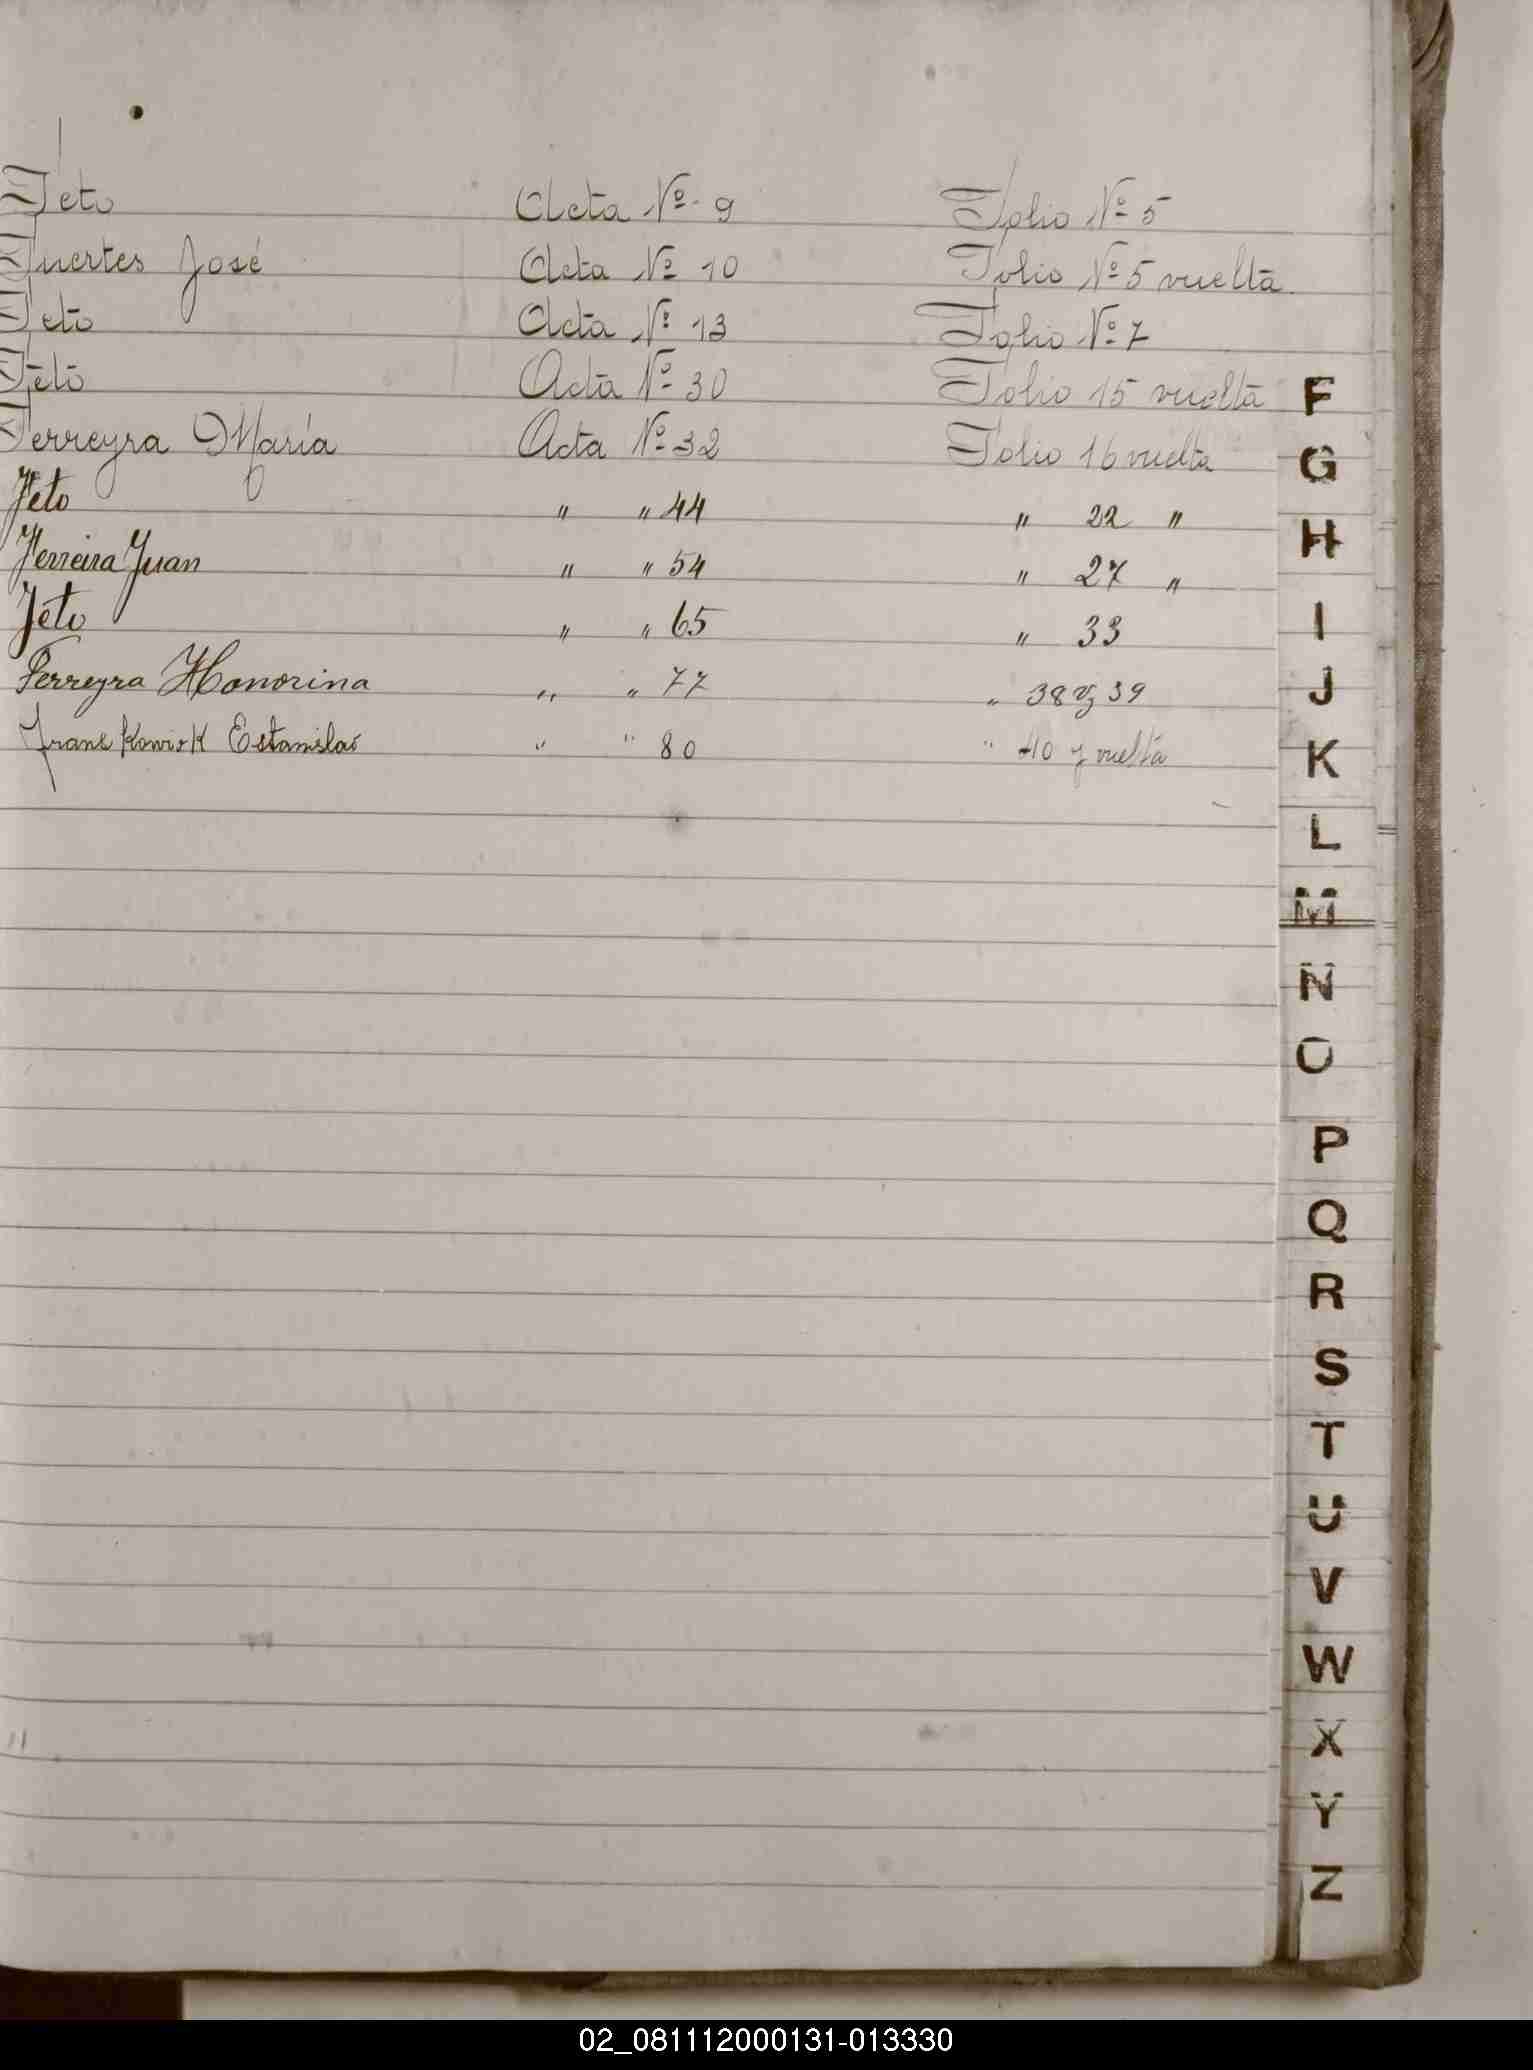 Feto Acta Nº 9 Folio Nº 5
Fuertes José Acta Nº 10 Folio Nº 5 vuelta
Feto Acta Nº 13 Folio Nº 7
Feto Acta Nº 30 Folio 15 vuelta
Ferreyra María Acta Nº 32 Folio 16 vuelta
Feto " " 44 " 22 "
Ferreira Juan " " 54 " 27 "
Feto " " 65 " 33
Ferreyra Honorina " " 77 " 38 y 39
Franckowiok Estanislao " " 80 " 40 y vuelta
F
G
H
I
J
K
L
M
N
O
P
Q
R
S
T
U
V
W
X
Y
Z
02_081112000131-013330